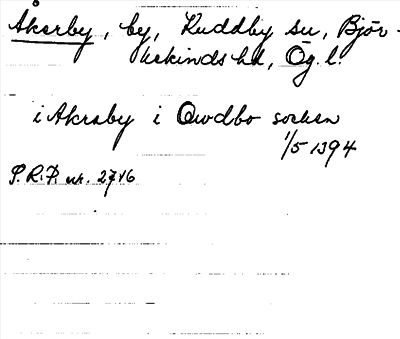 Åkerby, by, Kuddby sn, Björ-
kekinds hd, Ög. l.
i Akraby i Qwdbo socken
1/5 1394
S.R.P. nr. 2716